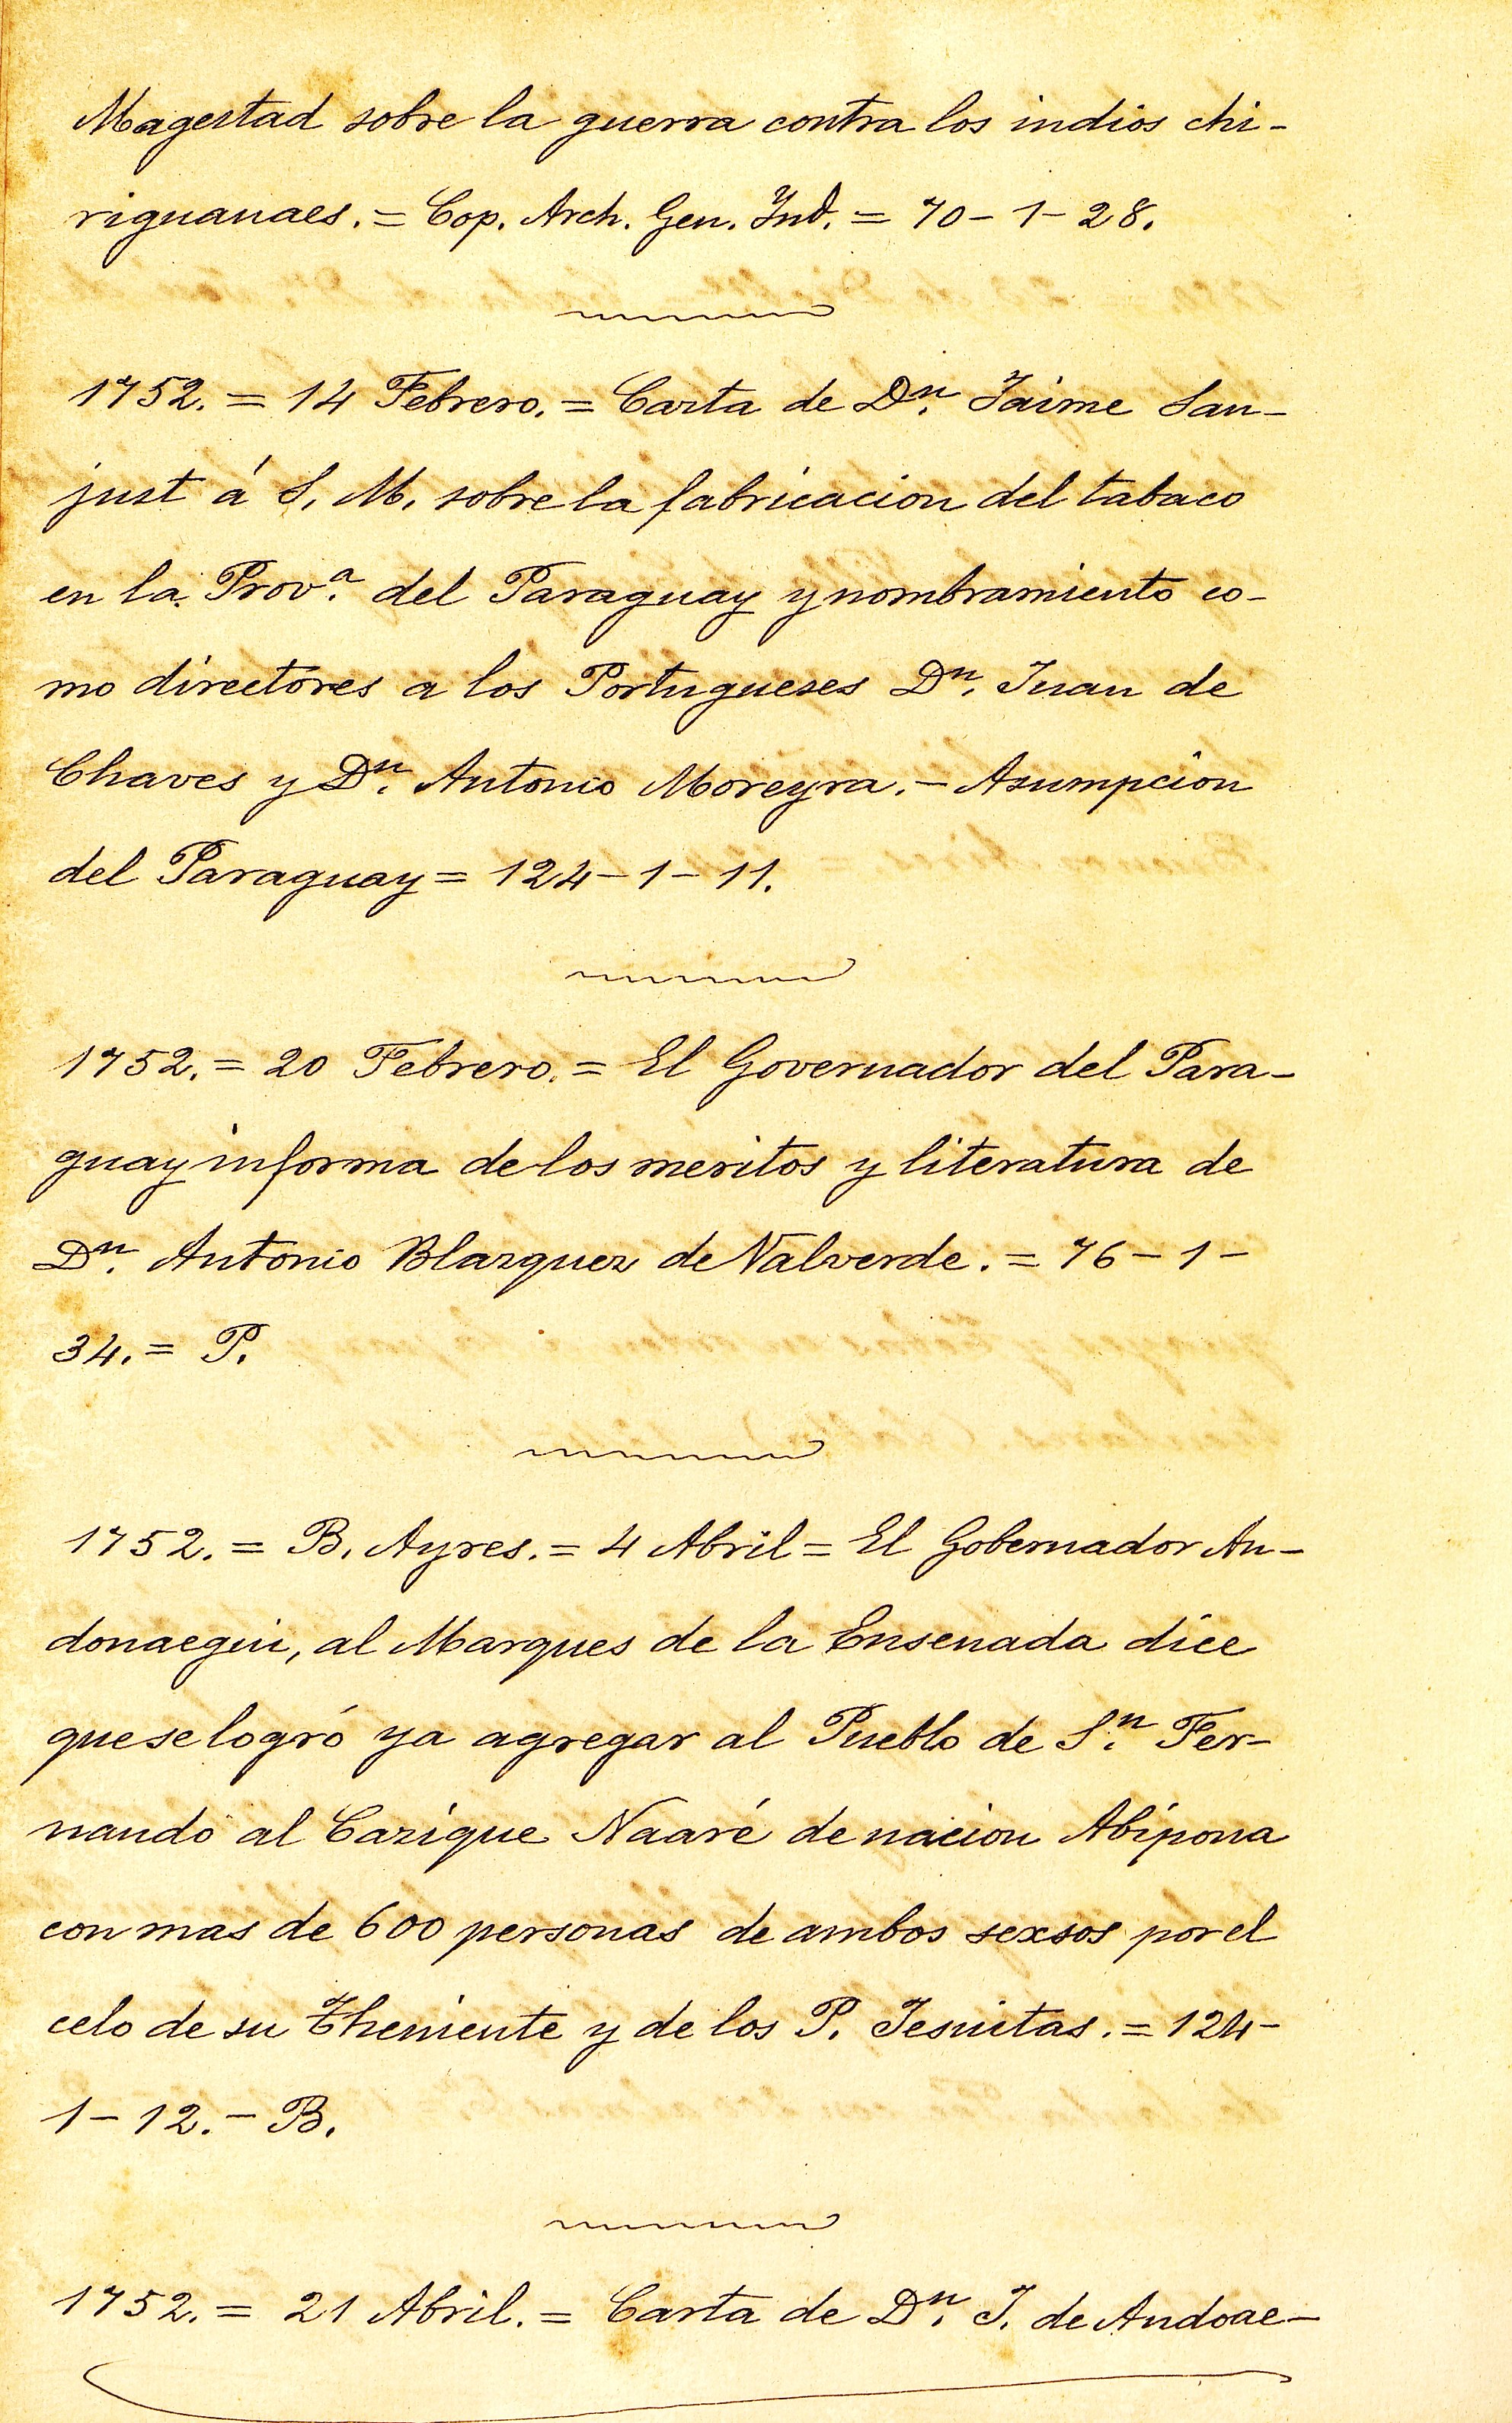 Magestad sobre la guerra contra los indios chi-
riguanaes. = Cop. Arch. Gen. Ind. = 70 - 1 - 28.
1752. = 14 Febrero. = Carta de Dn. Jaime San-
just á S. M. sobre la fabricacion del tabaco
en la Prov.a del Paraguay y nombramiento co-
mo directores a los Portugueses Dn. Juan de
Chaves y Dn. Antonio Moreyra. - Asumpcion
del Paraguay = 124 - 1 - 11.
1752. = 20 Febrero. = El Governador del Para-
guay informa de los meritos y literatura de
Dn. Antonio Blazquez de Valverde. = 76 - 1 -
34. = P.
1752. = B. Ayres. = 4 Abril = El Gobernador An-
donaegui, al Marques de la Ensenada dice
que se logró ya agregar al Pueblo de Sn. Fer-
nando al Cazique Naaré de nacion Abipona
con mas de 600 personas de ambos sexsos por el
celo de su Theniente y de los P. Jesuitas. = 124 -
1 - 12. - B.
1752. = 21 Abril. = Carta de Dn. J. de Andoae-